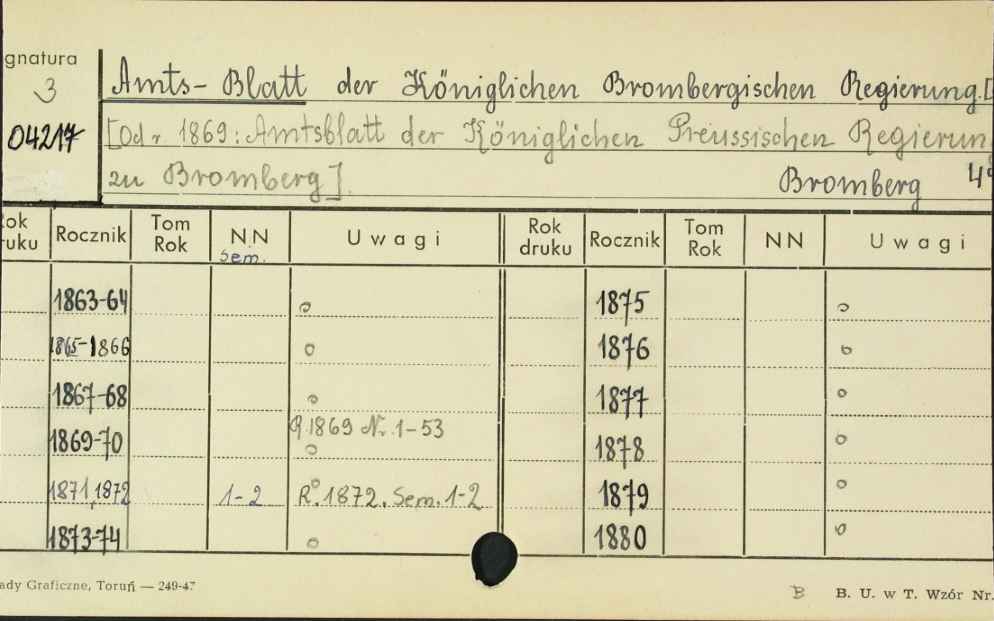 gnatura
3
04217
Amts-Blatt der Königlichen Brombergischen Regierung. [
[Od r 1869: Amtsblatt der Königlichen Preussischen Regierun
zu Bromberg].
Bromberg 4°
Rok ruku Rocznik Tom Rok NN Sem. Uwagi Rok druku Rocznik Tom Rok NN Uwagi
1863-64 o 1875 o
1865-1866 o 1876 o
1867-68 o 1877 o
1869-70 R. 1869 Nr. 1-53 o 1878 o
1871, 1872 1-2 R. 1872. Sem. 1-2 1879 o
1873-74 o 1880 o
ady Graficzne, Toruń — 249-47
B B. U. w T. Wzór Nr.